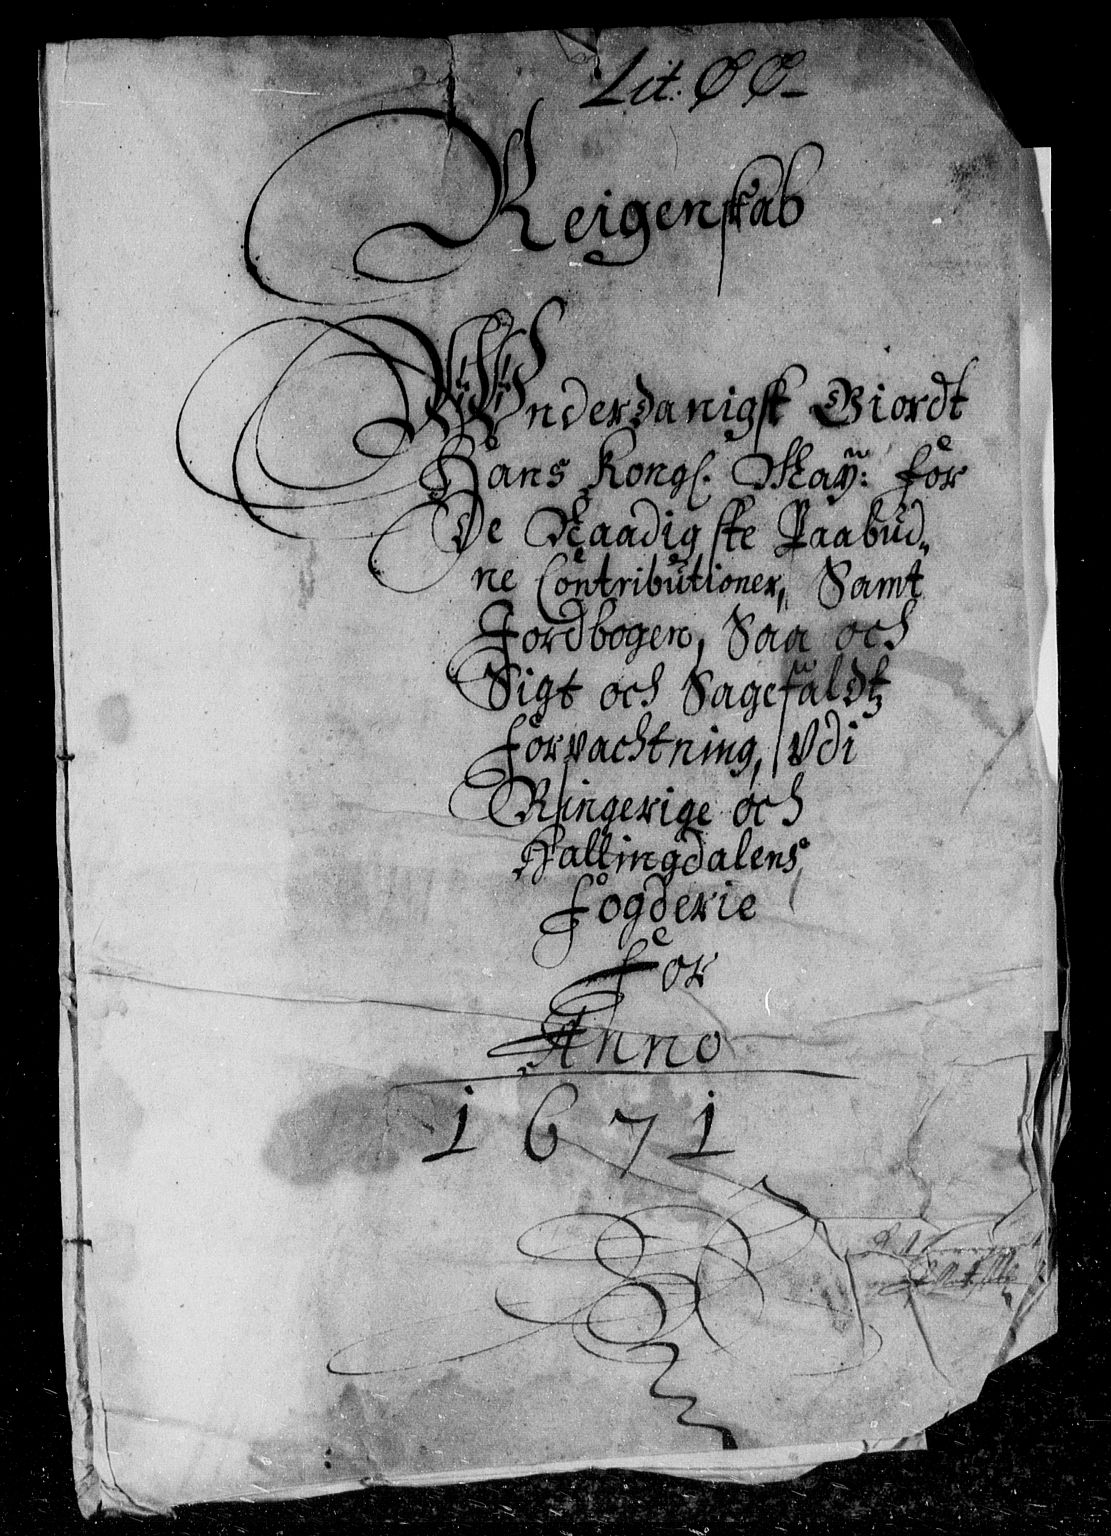 Lit. Ø Ø
Reigenskab
Wnderdanigst Giordt
Hans Kongl. Maÿ: for
De Naadigste Paabud„
ne Contributioner, Samt
Jordbogen, Saa och
Sigt och Sagefaldtz
forpachtning, Vdi
Ringerige och
Hallingdalens
fogderie
for
Anno
1671